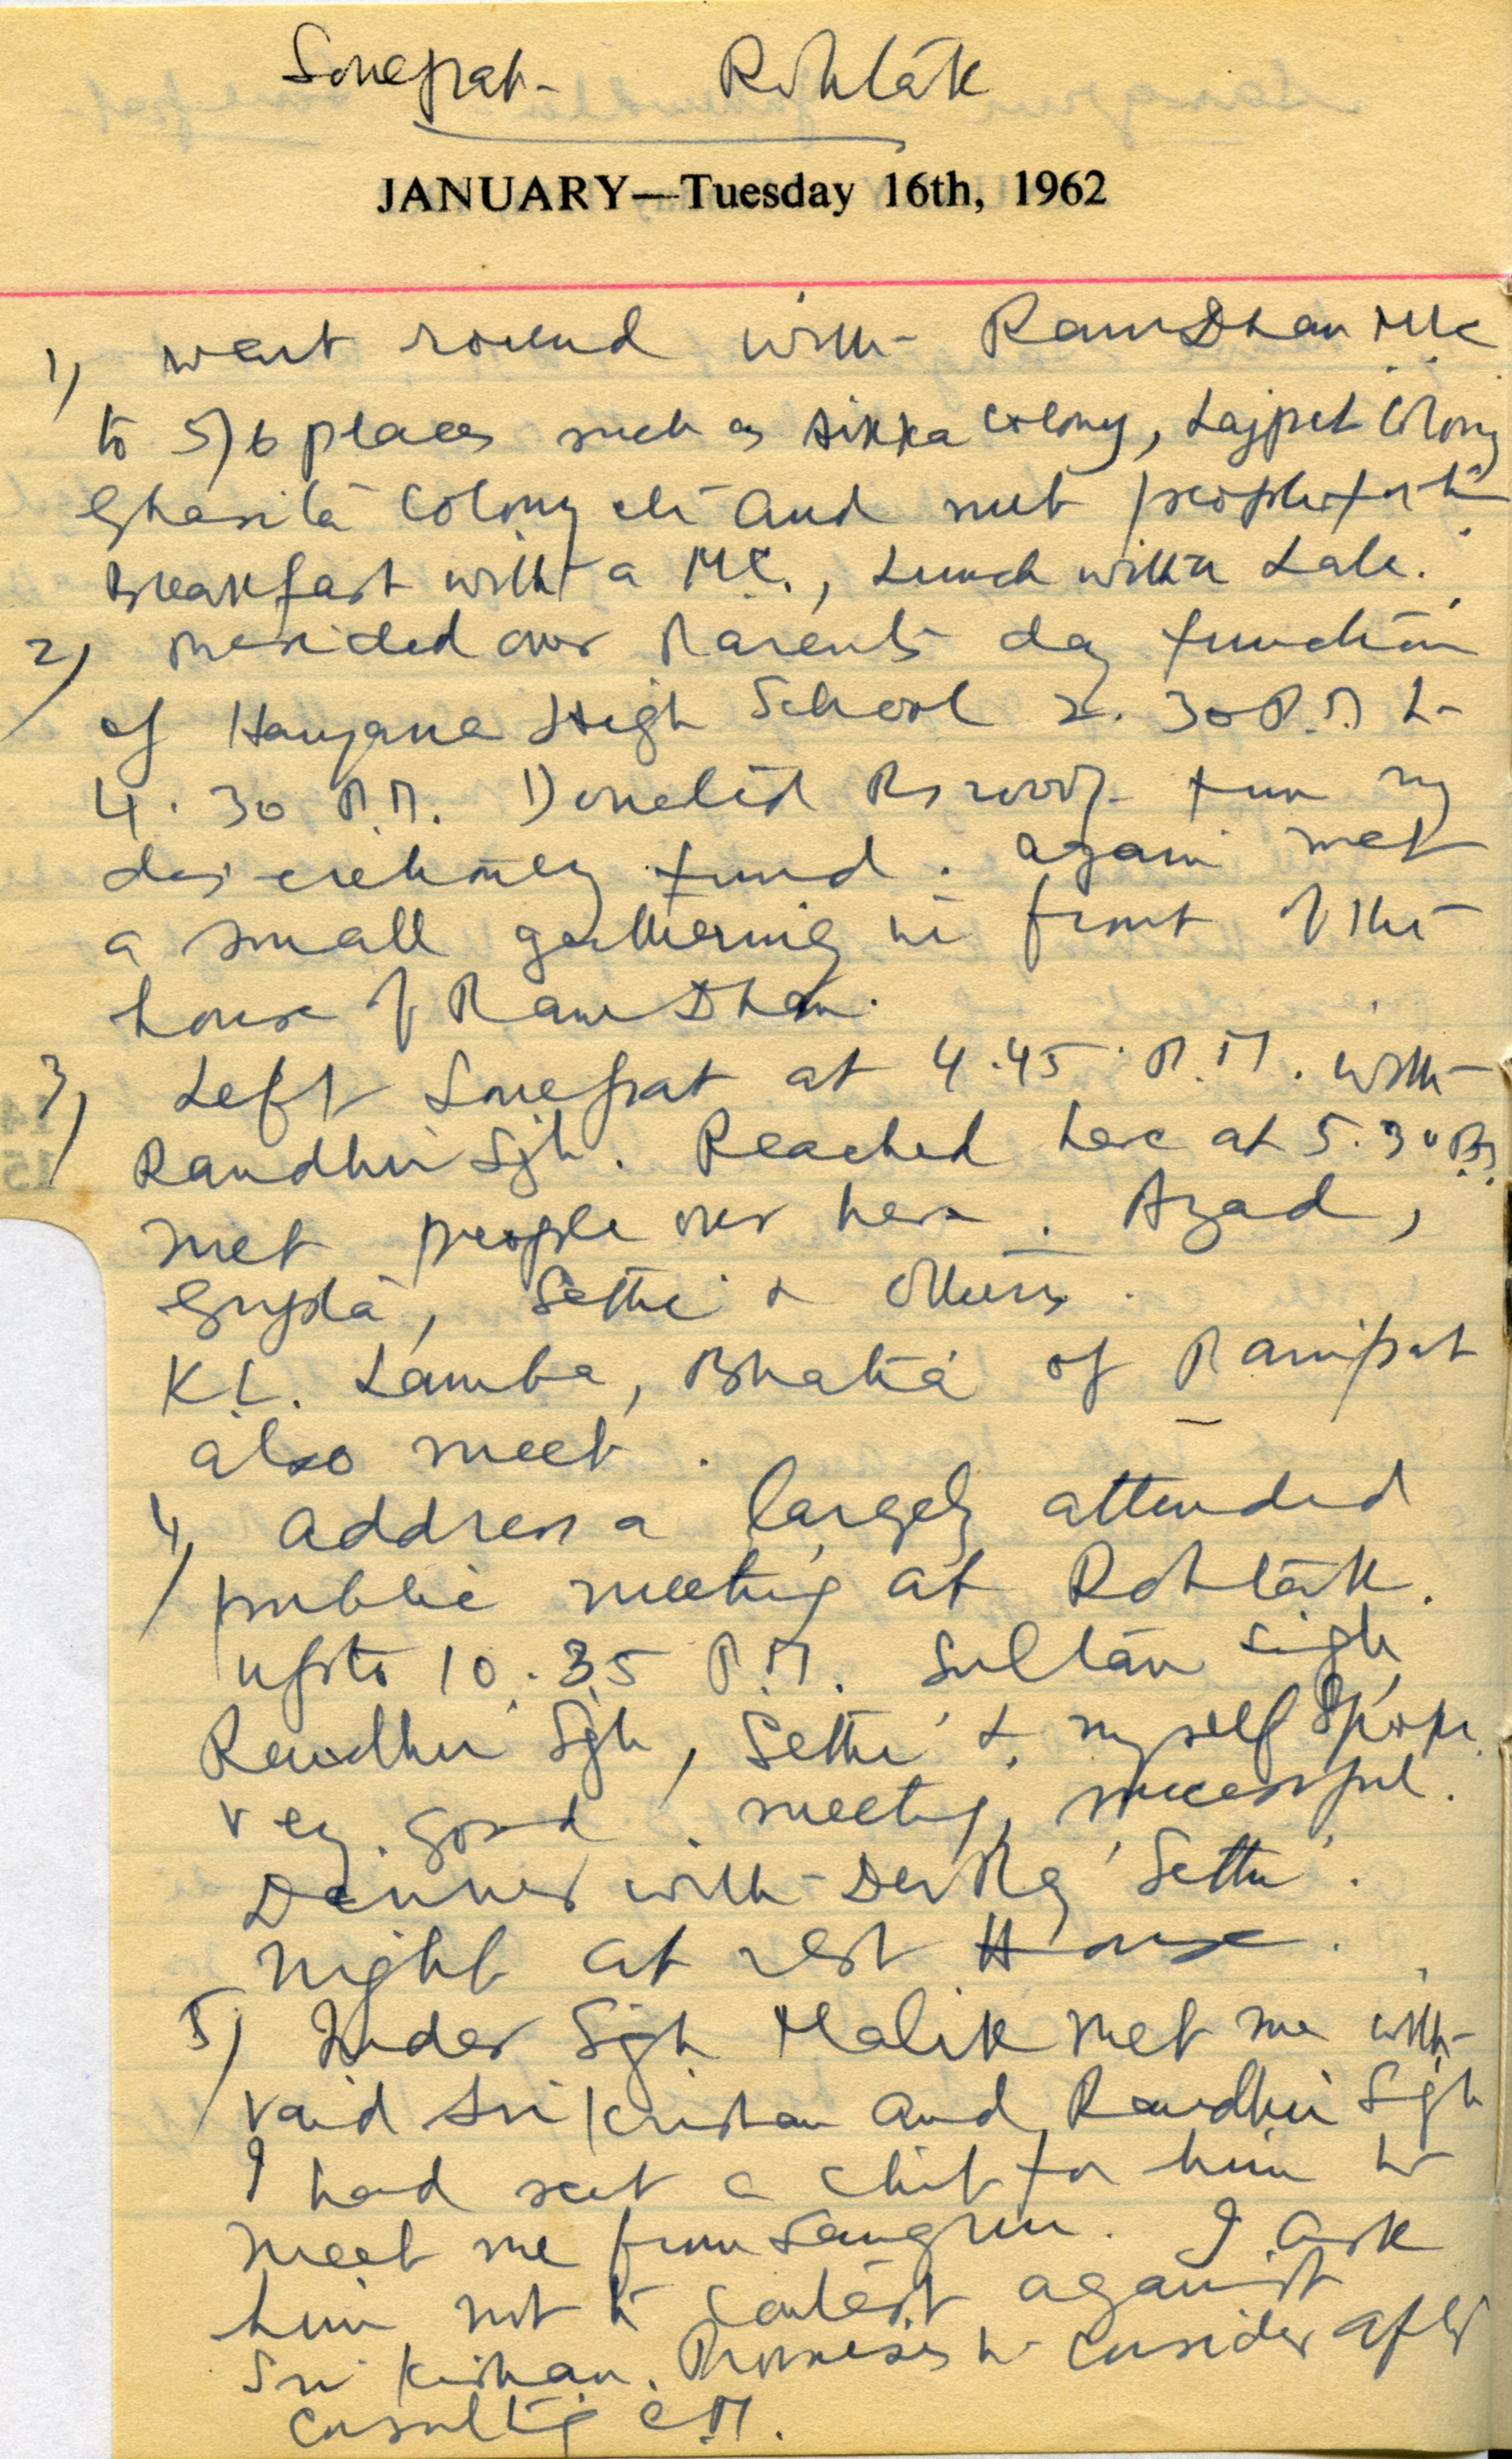 Sonepat - Rohtak
JANUARY—Tuesday 16th, 1962
1) went round with Ram Dhan MLC
to 5/6 places such as Sikka Colony, Lajpat Colony
Ghasita Colony etc and met people
Breakfast with a M.C., Lunch with Lale.
2) Presided over Parents day function
of Haryana High School 2.30 P.M to
4.30 P.M. Donated Rs 200/- from my
discretionary fund. again met
a small gathering in front of the
house of Ram Dhan.
3) Left Sonepat at 4.45 P.M. with
Randhir Sgh. Reached here at 5.30 P.M.
Met people over here. Azad,
Gupta, Sethi & others.
K.L. Lamba, Bhatia of Panipat
also meet.
4) Address a largely attended
public meeting at Rohtak.
upto 10.35 P.M. Sultan Sigh,
Randhir Sgh, Sethi & myself spoke.
Very good meeting, successful.
Dinner with Dev Raj Sethi.
Night at rest House.
5) Inder Sgh Malik met me with
Vaid Sri Krishan and Randhir Sgh
I had sent a chit for him to
meet me from Sangrur. I ask
him not to contest against
Sri Kishan. Promises to consider after
consulting C.M.